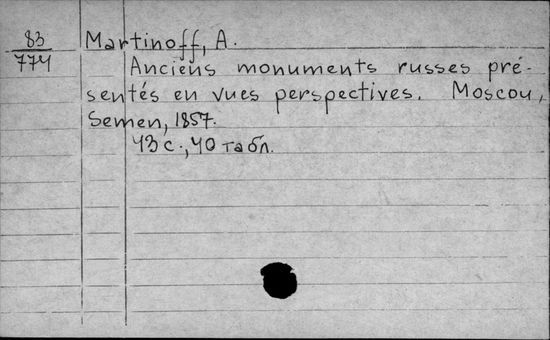 83 Martinoff, A.
774 Anciens monuments russes pré-
sentés en vues perspectives. Moscou,
Semen, 1857.
43 с., 40 табл.